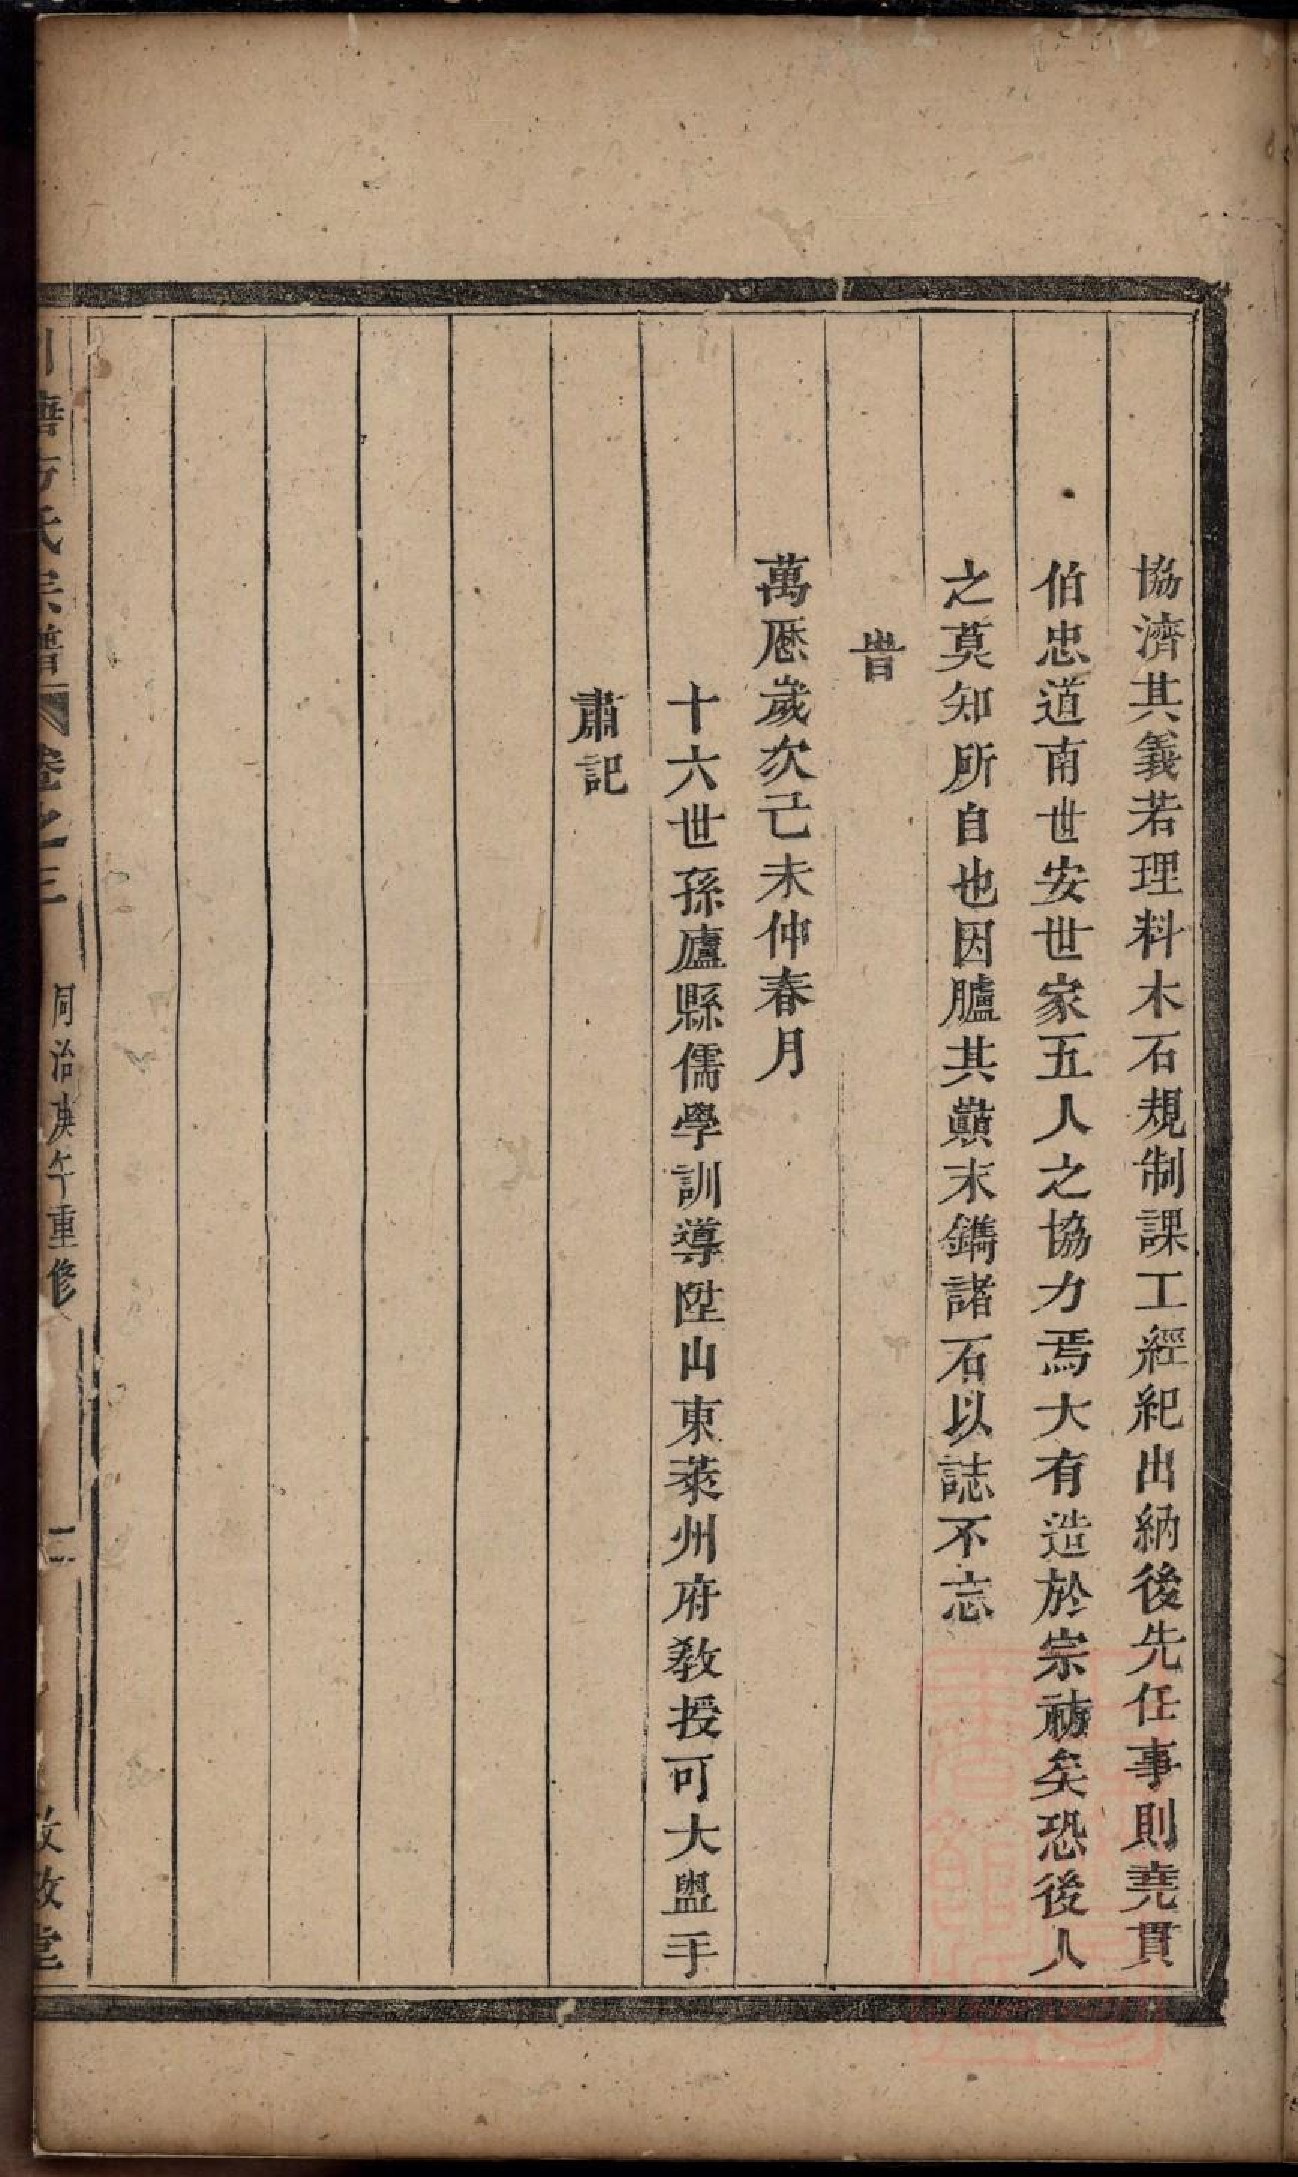 協濟其義若理料木石規制課工經紀出納後先任事則堯貫
伯忠道南世安世家五人之協力焉大有造於宗祊矣恐後人
之莫知所自也因臚其巔末鐫諸石以誌不忘
旹
萬厯歲次己未仲春月
十六世孫廬縣儒學訓導陞山東萊州府教授可大盥手
肅記
方氏宗譜 卷之三 同治庚午重修 二 堂